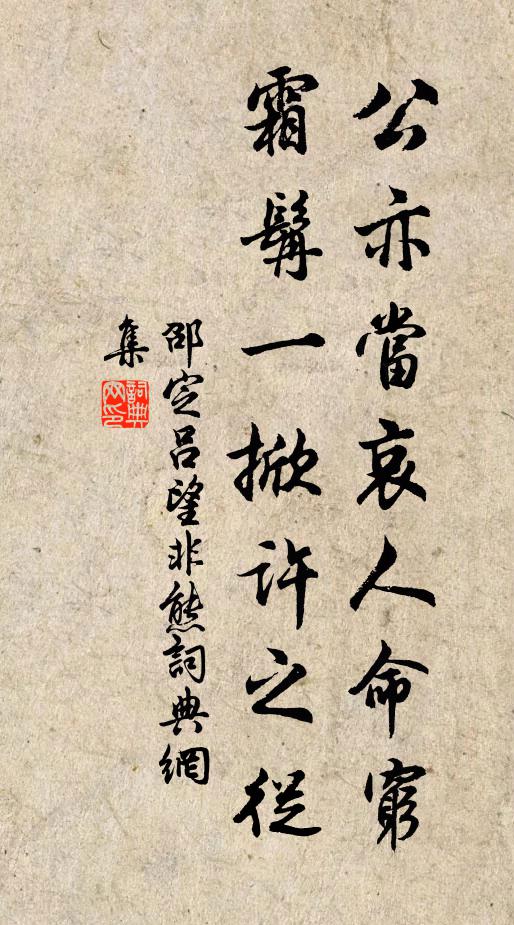 公亦當哀人命窮
霜髯一掀許之從
邵定呂望非熊詞典網
集
詞典
网印